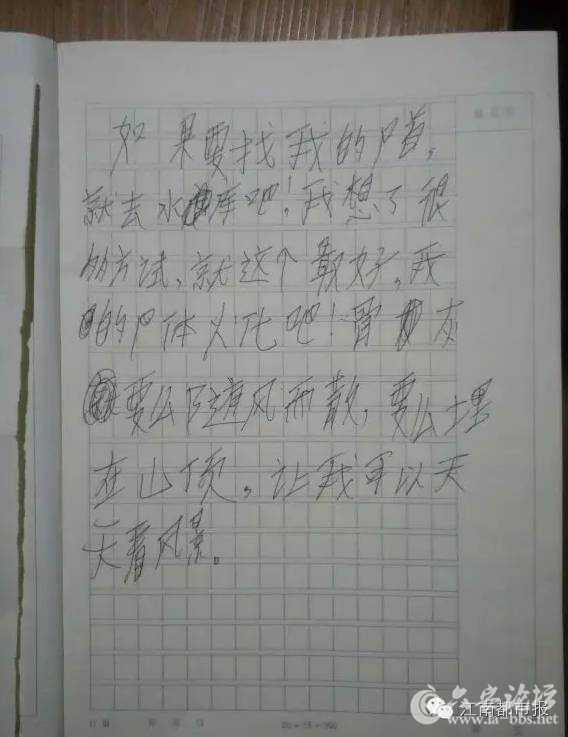 如果要找我的尸首,
就去水库吧!我想了很
的方试,就这个最好,我
的尸体火化吧!骨灰
要么随风而散,要么埋
在山顶,让我可以天
天看风景。
20×15=300
六安论坛
江南都市报
www.la-bbs.net